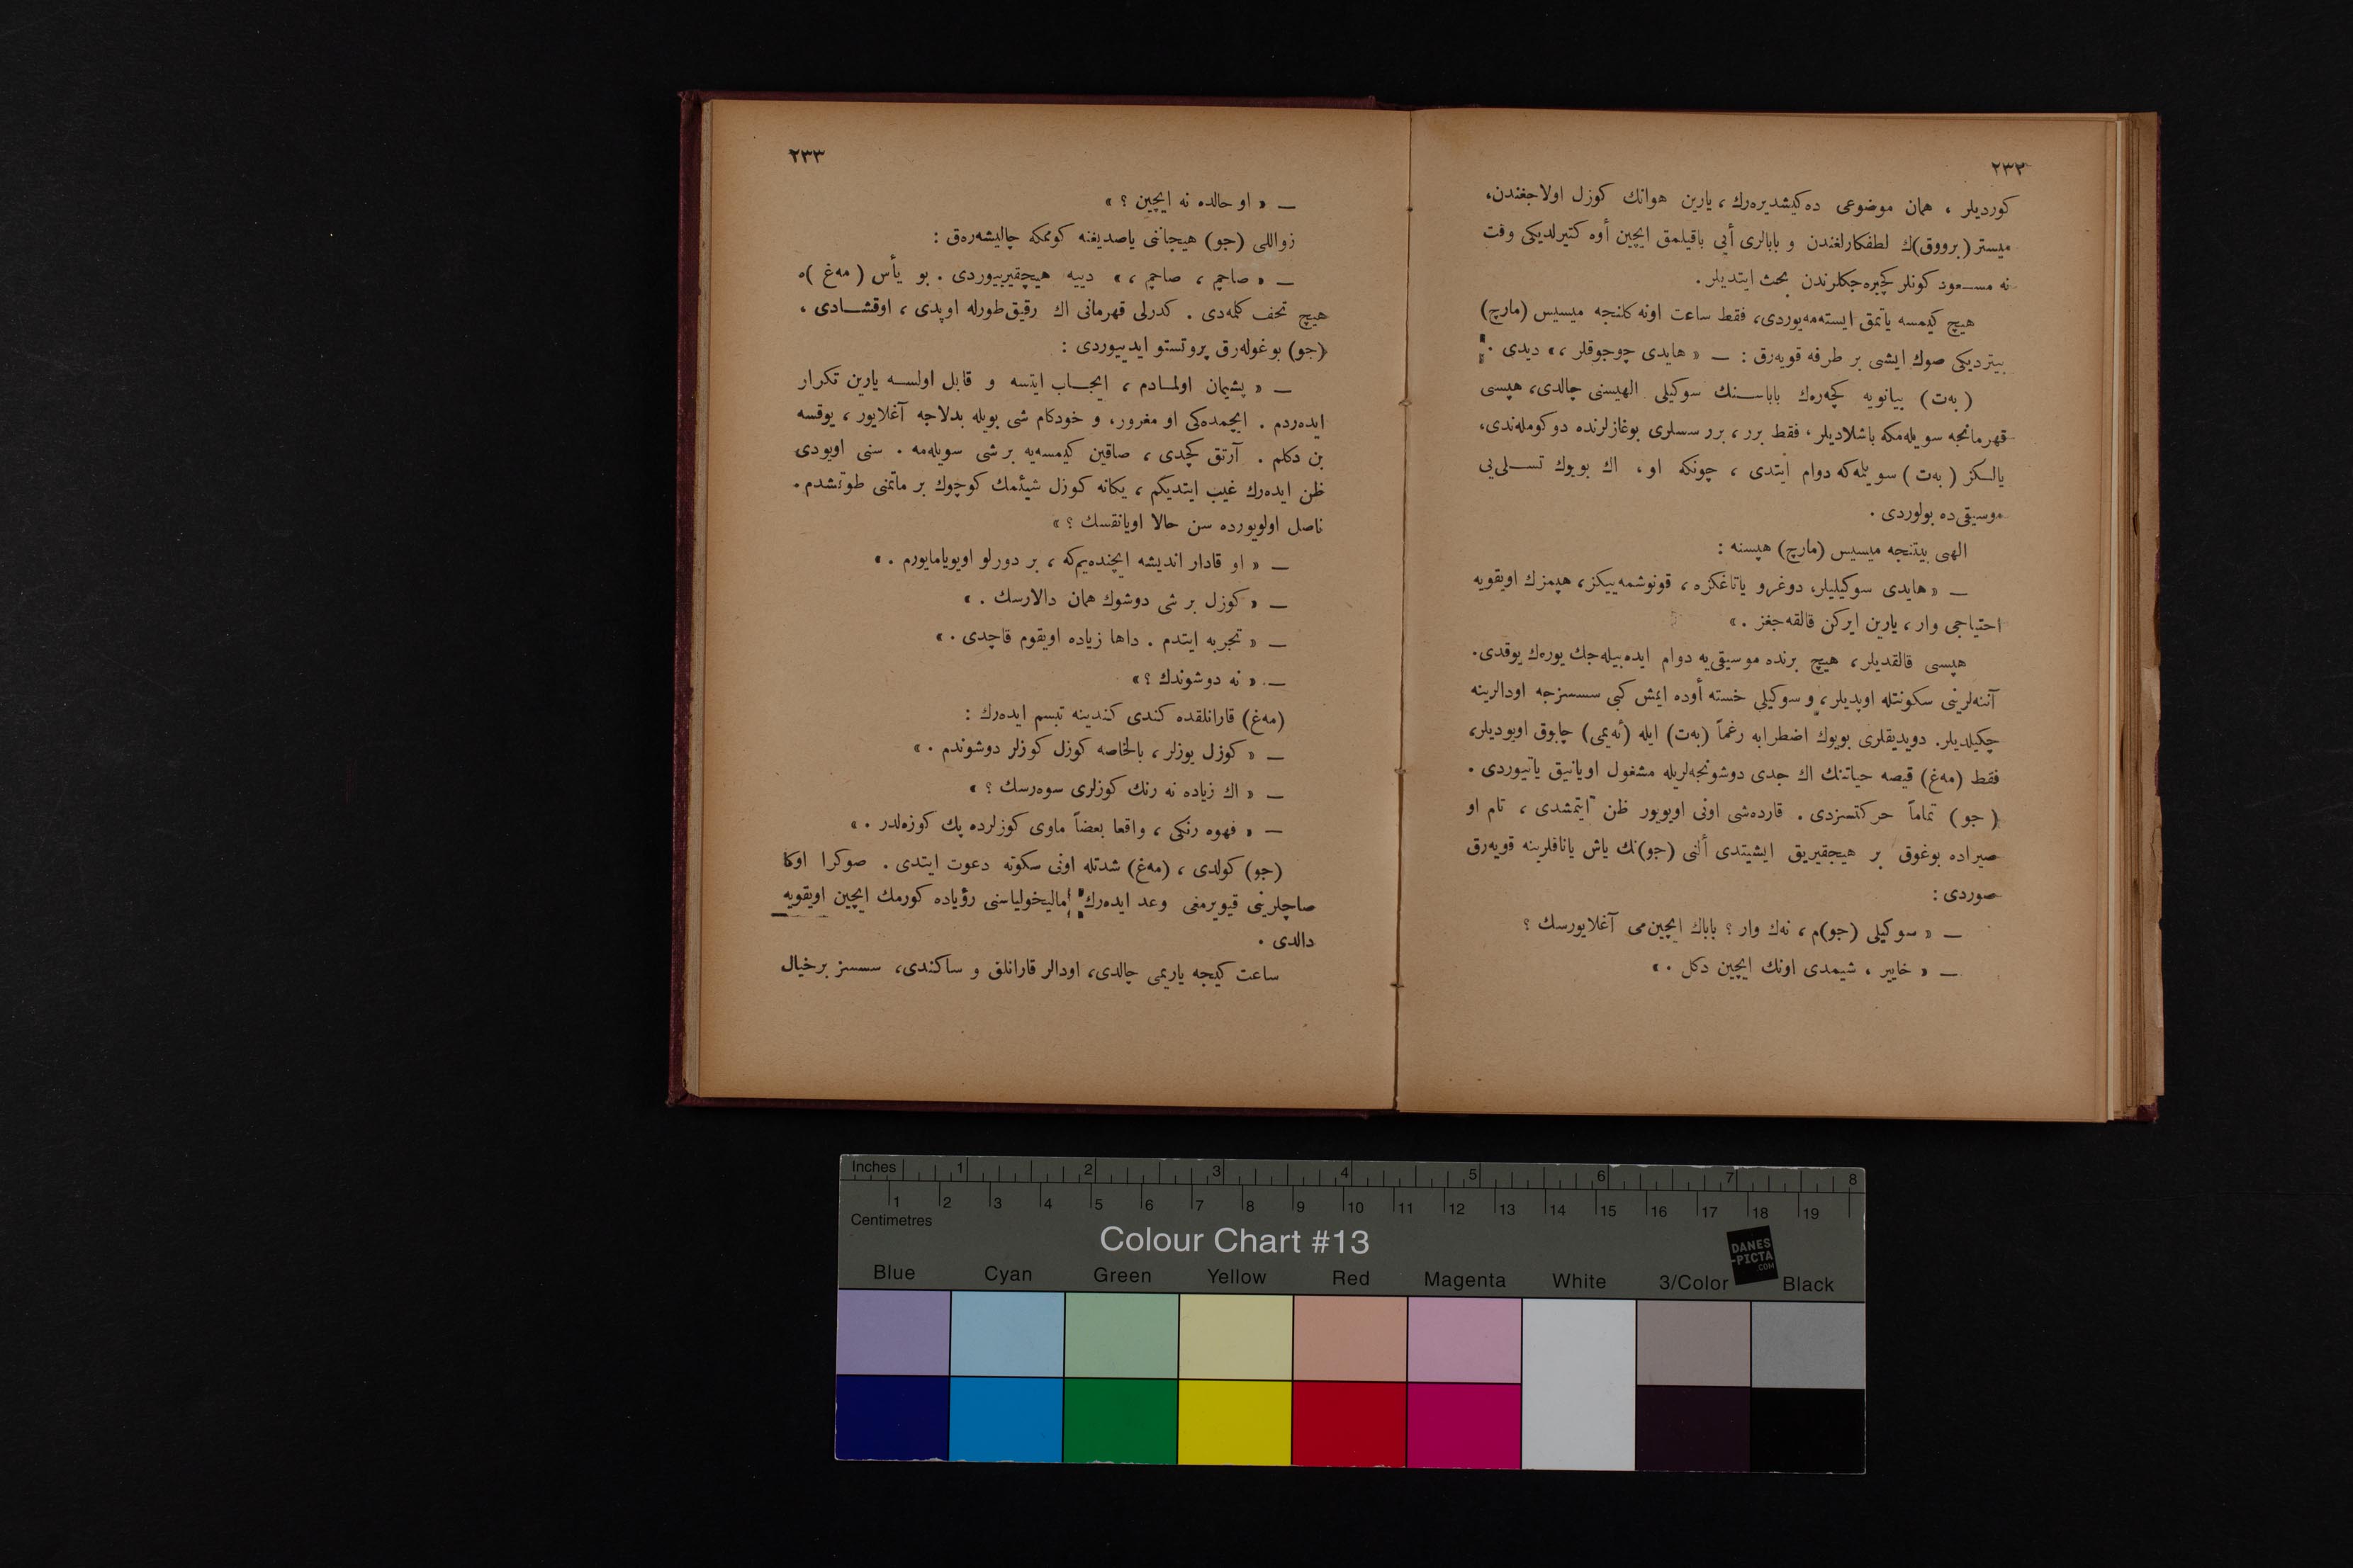 ٢٣٢
كورديلر ، همان موضوعى ده‌كيشديره‌رك ، يارين هوانك كوزل اولاجغندن،
ميستر (برووق)ك لطفكارلغندن و بابالرى أيى باقيلمق ايچين أوه كتيرلديكى وقت
نه مسعود كونلر كچيره‌جكلرندن بحث ايتديلر .
هيچ كيمسه ياتمق ايسته‌مه‌يوردى، فقط ساعت اونه كلنجه ميسيس (مارچ)
بيترديكى صوك ايشى بر طرفه قويه‌رق : — « هايدى چوجوقلر ،» ديدى .
(به‌ت) بيانويه كچه‌رك باباسنك سوكيلى الهيسنى چالدى، هپسى
قهرمانجه سويله‌مكه باشلاديلر ، فقط برر ، برر سسلرى بوغازلرنده دوكومله‌ندى،
يالكز (به‌ت) سويلمه‌كه دوام ايتدى ، چونكه او ، اك بويوك تسلى‌يى
موسيقى‌ده بولوردى .
الهى بيتنجه ميسيس (مارچ) هپسنه :
— « هايدى سوكيليلر، دوغرو ياتاغكزه ، قونوشمه‌ييكز ، هپمزك اويقويه
احتياجى وار ، يارين ايركن قالقه‌جغز . »
هپسى قالقديلر ، هيچ برنده موسيقى‌يه دوام ايده‌بيله‌جك يوره‌ك يوقدى.
آننه‌لرينى سكونتله اوپديلر ، و سوكيلى خسته أوده ايمش كبى سسسزجه اودالرينه
چكيلديلر. دويديقلرى بويوك اضطرابه رغماً (به‌ت) ايله (ئه‌يمى) چابوق اويوديلر،
فقط (مه‌غ) قيصه حياتنك اك جدى دوشونجه‌لريله مشغول اويانيق ياتييوردى .
(جو) تماماً حركتسزدى . قارده‌شى اونى اويويور ظن ايتمشدى ، تام او
صيراده بوغوق بر هيچقيريق ايشيتدى ألنى (جو)نك ياش ياناقلرينه قويه‌رق
صوردى :
— « سوكيلى (جو)م ، نه‌ك وار ؟ باباك ايچين‌مى آغلايورسك ؟
— « خاير ، شيمدى اونك ايچين دكل . »
٢٣٣
— « او حالده نه ايچين ؟ »
زواللى (جو) هيجاننى ياصديغنه كوممكه چاليشه‌رق :
— « صاچم ، صاچم ، » دييه هيچقيرييوردى . بو يأس (مه‌غ)ه
هيچ تحف كلمه‌دى . كدرلى قهرمانى اك رقيق طورله اوپدى ، اوقشادى ،
(جو) بوغوله‌رق پروتستو ايدييوردى :
— « پشيمان اولمادم ، ايجاب ايتسه و قابل اولسه يارين تكرار
ايده‌ردم . ايچمده‌كى او مغرور، و خودكام شى بويله بدلاجه آغلايور ، يوقسه
بن دكلم . آرتق كچدى ، صاقين كيمسه‌يه بر شى سويله‌مه . سنى اويودى
ظن ايده‌رك غيب ايتديكم ، يكانه كوزل شيئمك كوچوك بر ماتمنى طوتشدم .
ناصل اولويورده سن حالا اويانقسك ؟ »
— « او قادار انديشه ايچنده‌يم‌كه ، بر دورلو اويويامايورم . »
— « كوزل بر شى دوشوك همان دالارسك . »
— « تجربه ايتدم . داها زياده اويقوم قاچدى . »
— « نه دوشوندك ؟ »
(مه‌غ) قارانلقده كندى كندينه تبسم ايده‌رك :
— « كوزل يوزلر ، بالخاصه كوزل كوزلر دوشوندم . »
— « اك زياده نه رنك كوزلرى سوه‌رسك ؟ »
— « قهوه رنكى ، واقعا بعضاً ماوى كوزلرده پك كوزه‌لدر . »
(جو) كولدى ، (مه‌غ) شدتله اونى سكوته دعوت ايتدى . صوكرا اوكا
صاچلرينى قيويرمغى وعد ايده‌رك ماليخولياسنى رؤياده كورمك ايچين اويقويه
دالدى .
ساعت كيجه ياريمى چالدى، اودالر قارانلق و ساكندى، سسسز برخيال
Inches 1 2 3 4 5 6 7 8
1 2 3 4 5 6 7 8 9 10 11 12 13 14 15 16 17 18 19
Centimetres
Colour Chart #13
DANES
-PICTA
.COM
Blue Cyan Green Yellow Red Magenta White 3/Color Black